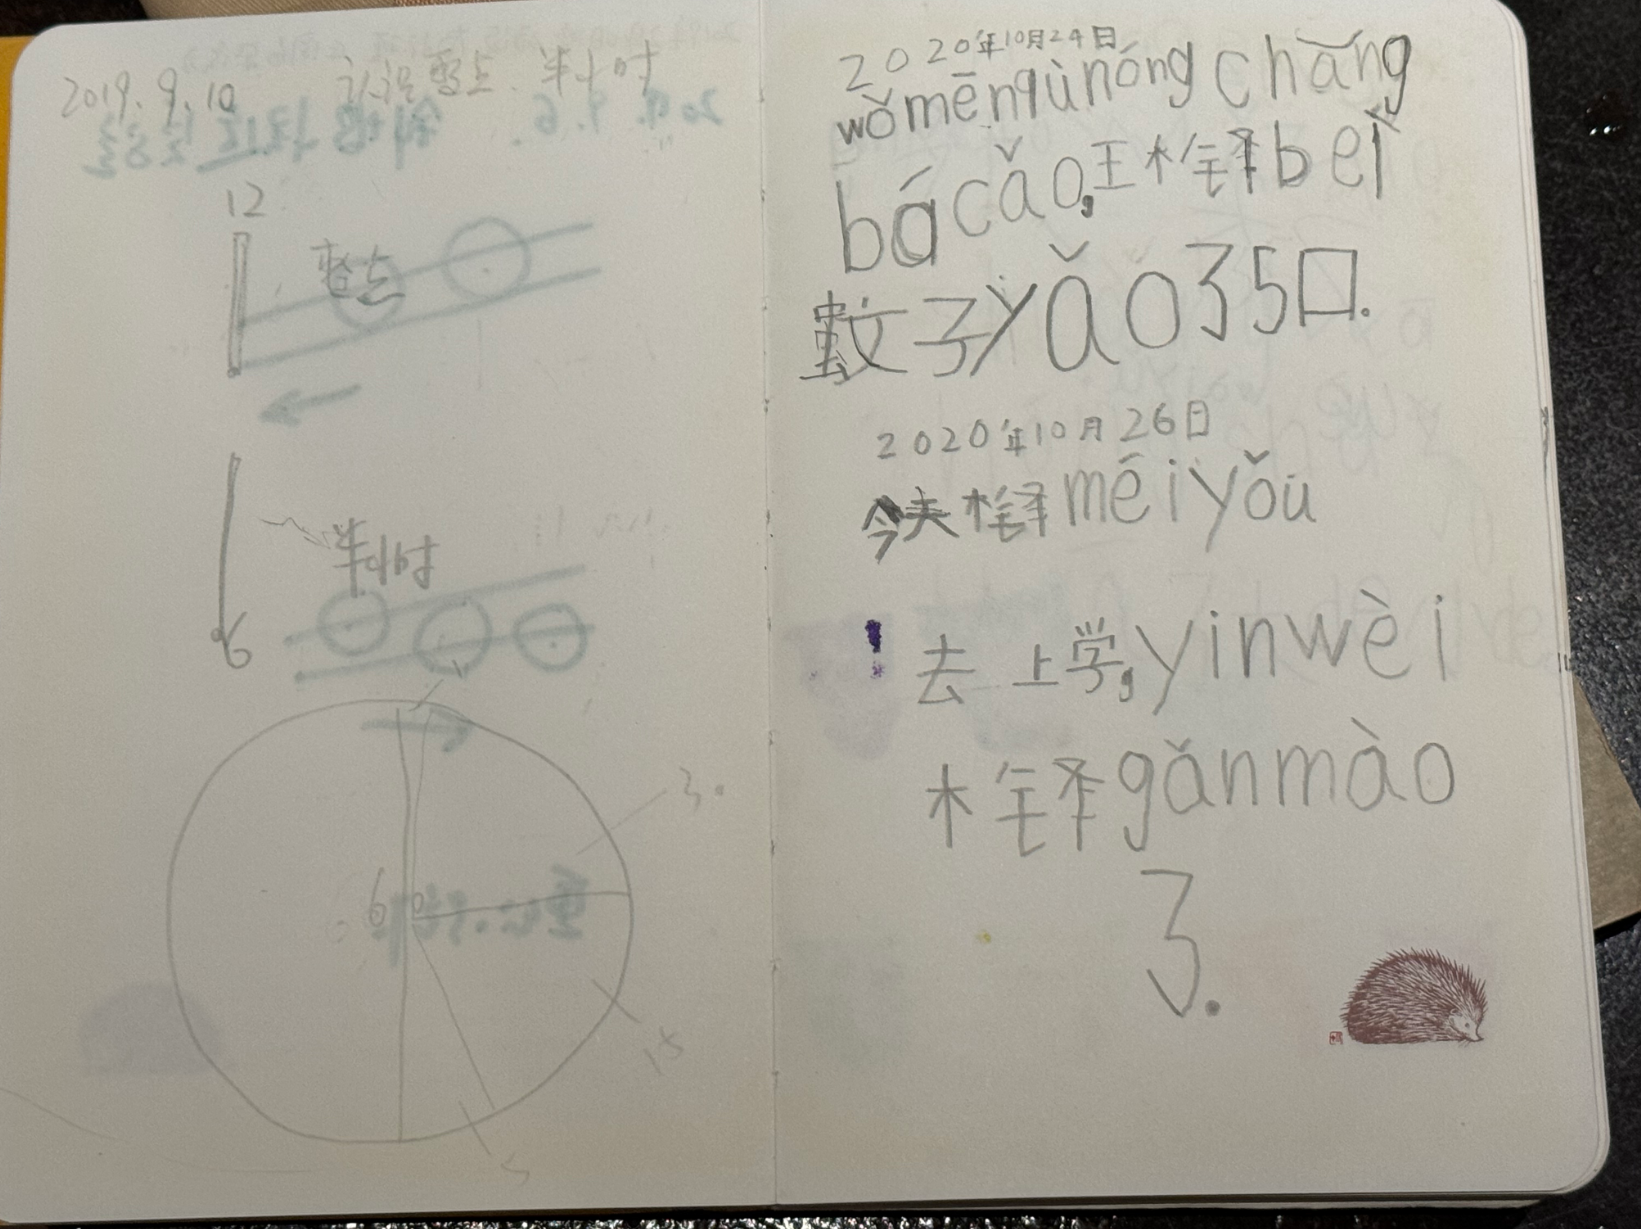 2019.9.10 认识整点、半小时
12
整点
半小时
6
3.
60
15
5
2020年10月24日
wǒmēnqùnóng chǎng
bácǎo,王木铎bèi
蚊子yǎo35口.
2020年10月26日
今天木铎méiyǒu
去上学,yinwèi
木铎gǎnmào
3.